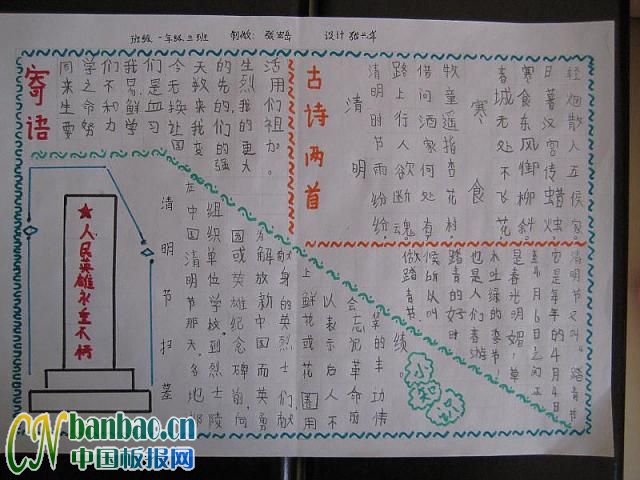 班级 一年级三班 制做:
设计
寄语
同学们我们今天的生活
来之不易是无数先烈用
生命和鲜血换来的我们
要努力学习
我们的祖
国变的更加
强大。
古诗两首
清明
清明时节雨纷纷,
路上行人欲断魂
借问酒家何处有
牧童遥指杏花村.
寒食
春城无处不飞花
寒食东风御柳斜.
日暮汉宫传蜡烛
轻烟散入五侯家.
人民英雄永垂不朽
清明节扫墓
在中国清明节那天,各地都
组织单位学校到烈士陵
园或英雄纪念碑前,向
为解放新中国而英勇
献身的英烈士们献
上鲜花或花圈用
以表示后人不
会忘记革命前
辈的丰功
绩.
小知识
清明节又叫"踏青节
它是每年的4月4日
至4月6日之间正
是春光明媚,草
木吐绿的季节!
也是人们春游
踏青的好时
候所以叫
做踏青节.
CN banbao.cn
中国板报网